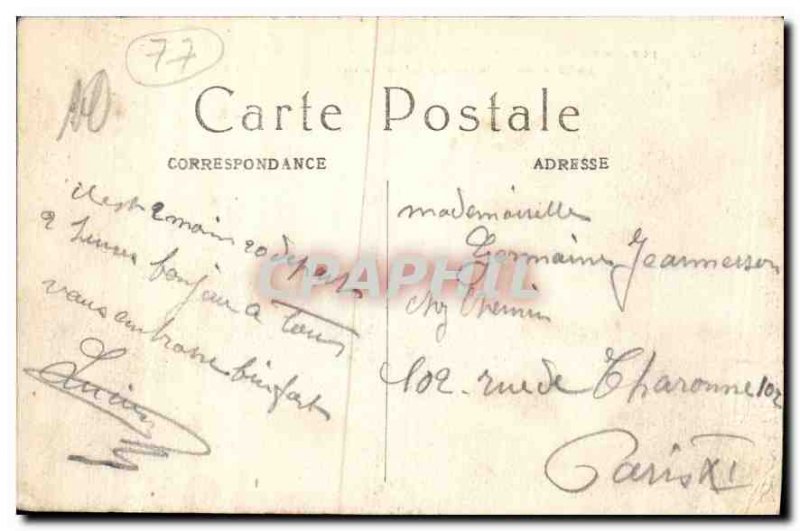 77
Carte Postale
CORRESPONDANCE
ADRESSE
il est 2 moin 20 depart
2 heures bonjour a tous
vous embrasse bien fort
Lucien
mademoiselle
Germaine Jeannesson
chez Chemin
102. rue de Charonne 102
Paris XI
CPAPHIL